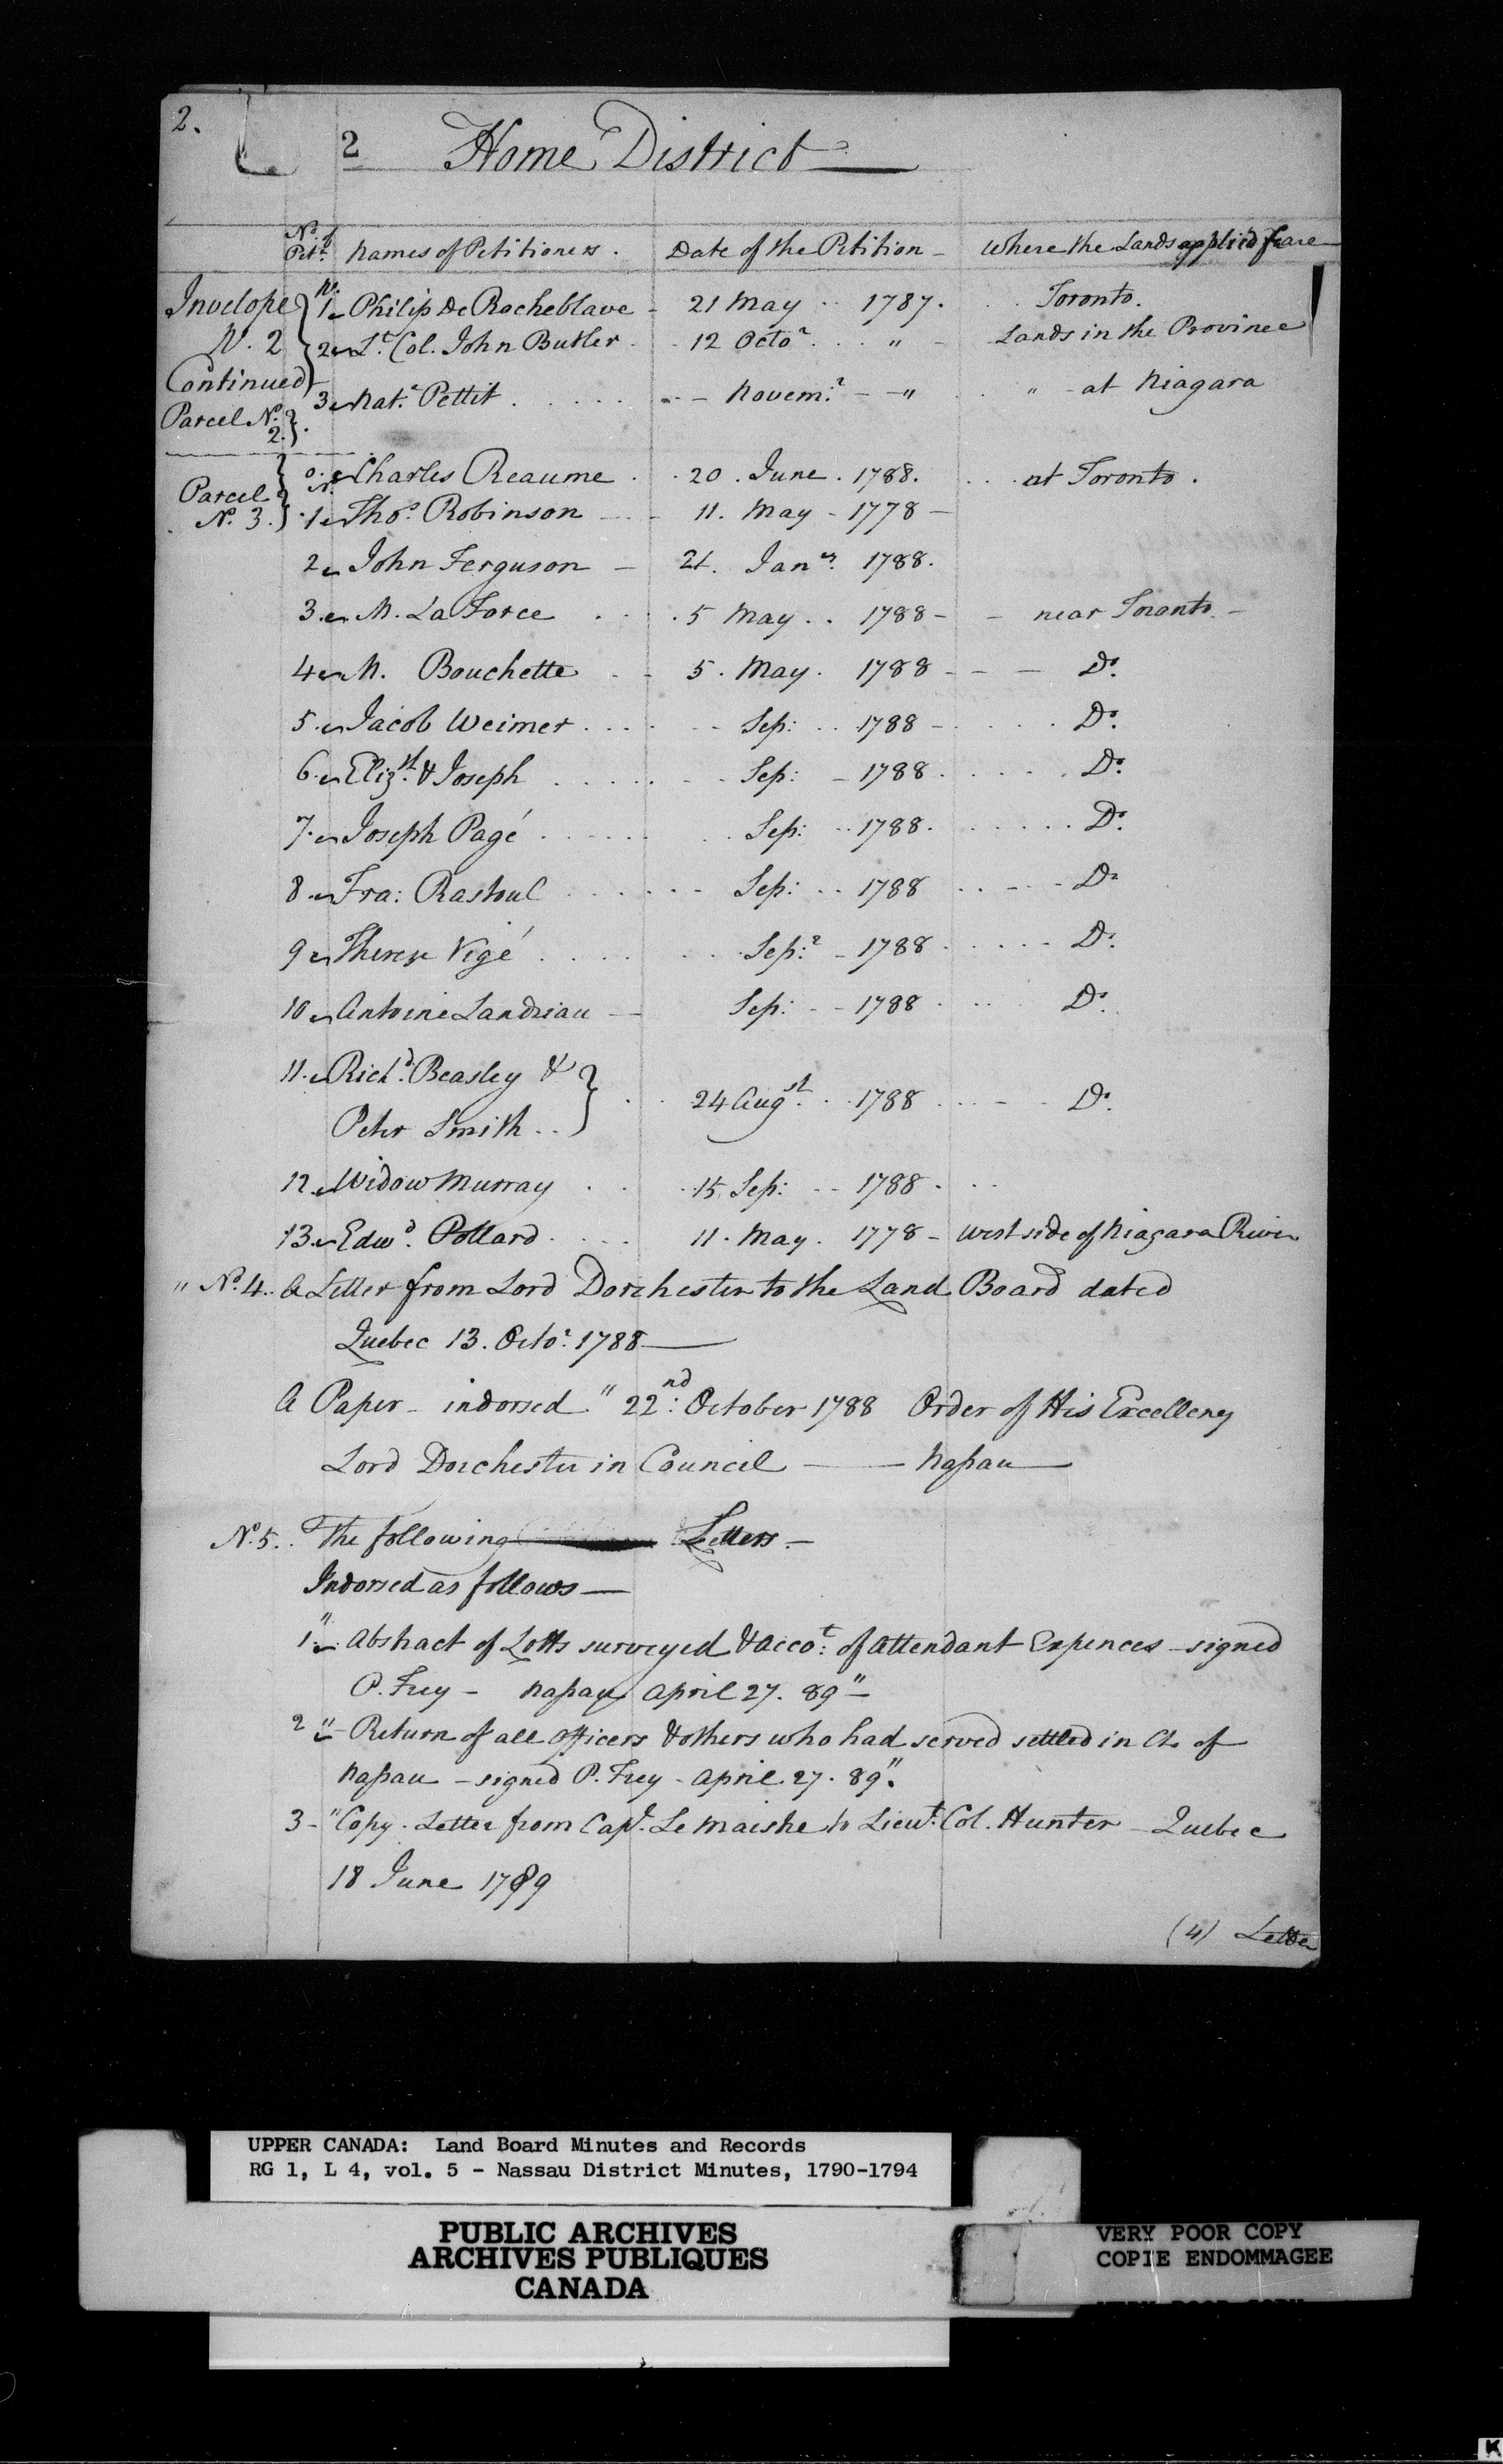 2.
2 Home District
No. of Petns. Names of Petitioners. Date of the Petition Where the Lands applied for are
Invelope No. 1 Philip De Rocheblave 21 May 1787. Toronto.
N. 2 2 Lt. Col. John Butler 12 Octor. " Lands in the Province
Continued
3 Natl. Pettit Novemr. " " at Niagara
Parcel No. 2.
0. Charles Reaume 20 June 1788. at Toronto.
Parcel No. 3. 1 Thos. Robinson 11. May 1778
2 John Ferguson 21. Jany. 1788.
3 M. La Force 5 May 1788 near Toronto
4 M. Bouchette 5. May 1788 Do.
5 Jacob Weimer Sep: 1788 Do.
6 Elizst. & Joseph Sep: 1788 Do.
7 Joseph Pagé Sep: 1788. Do.
8 Fra: Rastoul Sep: 1788 Do
9 Therese Vigé Sep:r 1788 Do.
10 Antoine Landriau Sep: 1788 Do.
11. Richd. Beasley &
Peter Smith 24 Augst. 1788 Do.
12 Widow Murray 15 Sep: 1788
13 Edwd. Pollard 11. May. 1778 West side of Niagara River
" No. 4. A Letter from Lord Dorchester to the Land Board dated
Quebec 13. Octor. 1788
A Paper indorsed " 22nd: October 1788 Order of His Excellency
Lord Dorchester in Council Nassau
No. 5. The following Letters
Indorsed as follows
1 " Abstract of Lotts surveyed & Accot: of attendant Expences signed
P. Frey Nassau April 27. 89"
2 " Return of all Officers & others who had served settled in Ct. of
Nassau signed P. Frey April 27. 89".
3 " Copy Letter from Capt. Le Maistre to Lieut. Col. Hunter Quebec
18 June 1789
(4) Letter
UPPER CANADA: Land Board Minutes and Records
RG 1, L 4, vol. 5 - Nassau District Minutes, 1790-1794
PUBLIC ARCHIVES
ARCHIVES PUBLIQUES
CANADA
VERY POOR COPY
COPIE ENDOMMAGEE
K